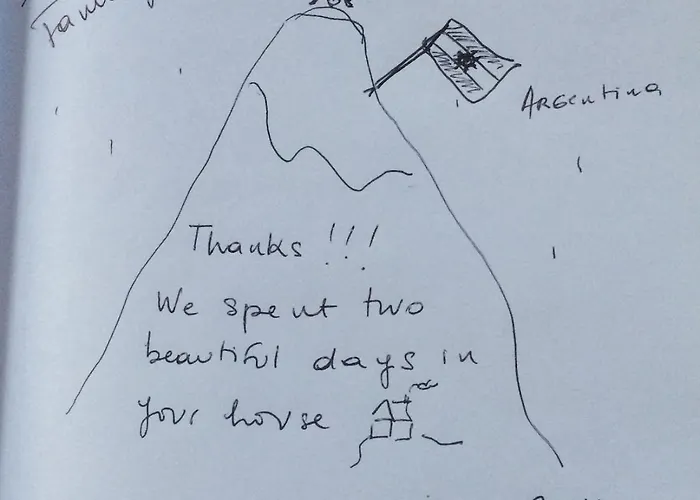 Argentina
Thanks !!!
We spent two
beautiful days in
your house